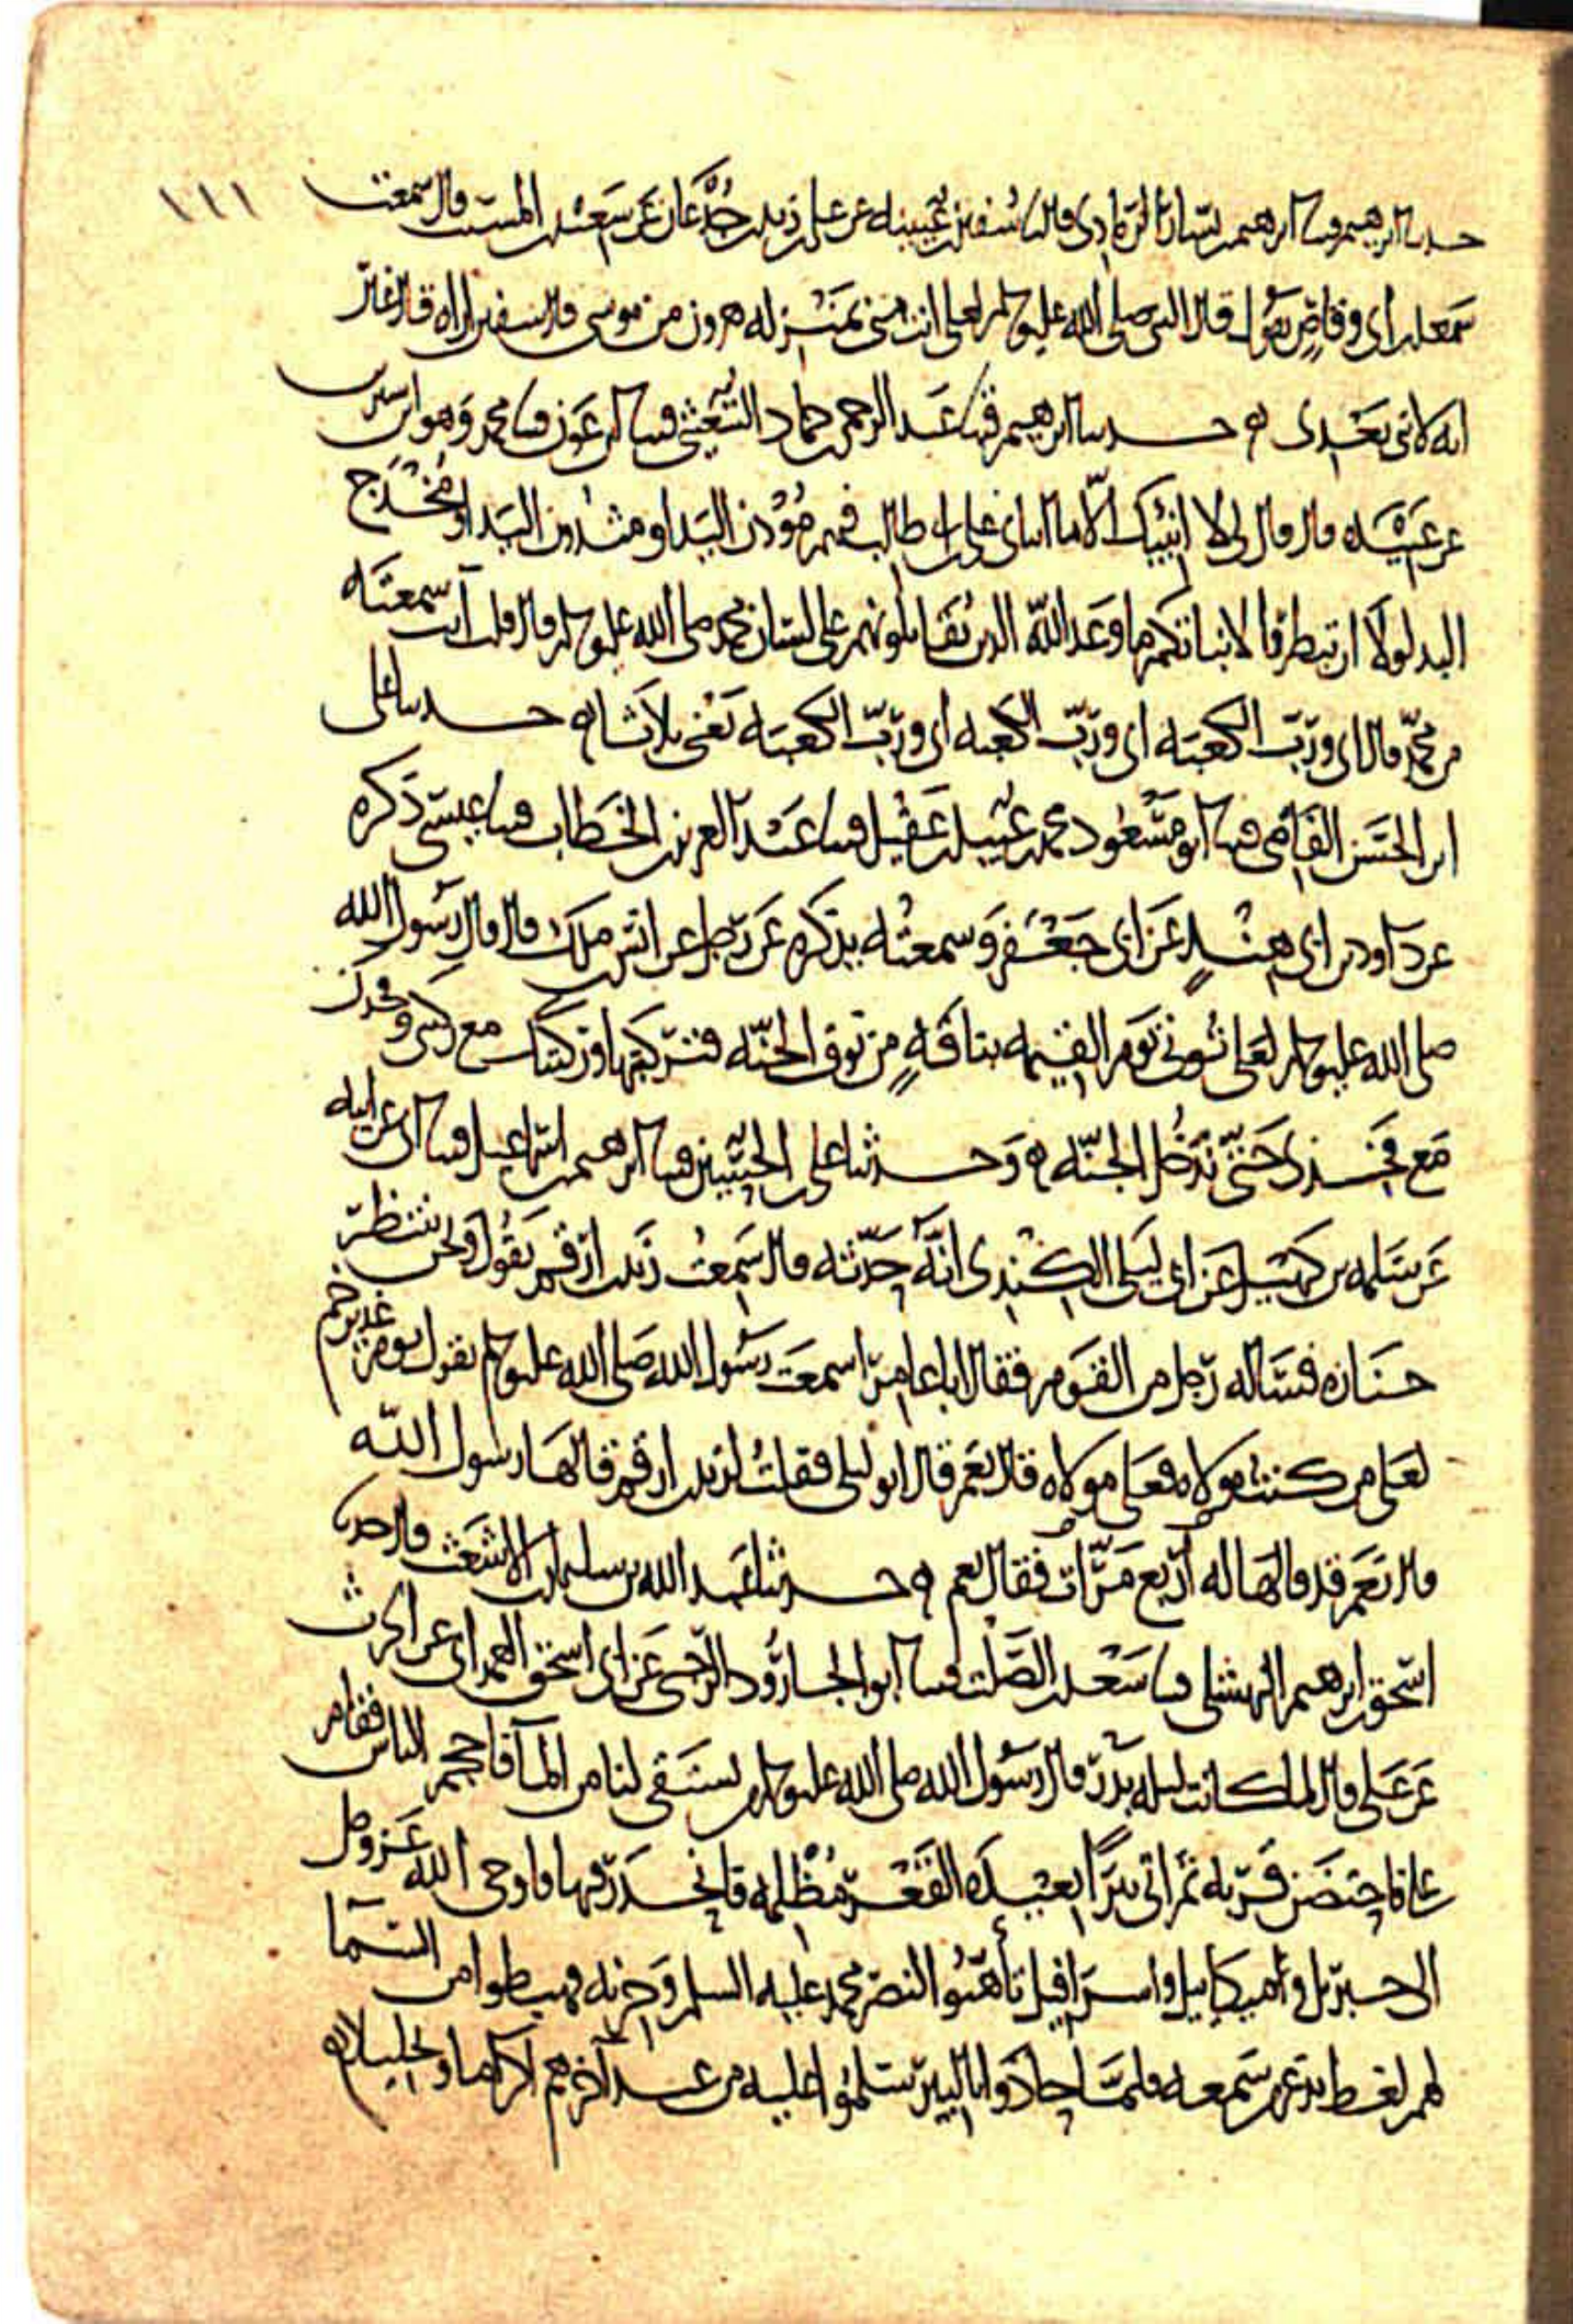 ١١١
حدثنا ابرهيم قثنا ابرهيم بن بشار الرمادي قال نا سفين بن عيينه عن علي بن زيد بن جدعان عن سعيد بن المسيب قال سمعت
سعد بن ابي وقاص يقول قال النبي صلى الله عليه وسلم لعلي انت مني بمنزله هرون من موسى قال سفين اراه قال غير
انه لا نبي بعدي ه حدثنا ابرهيم قثنا عبد الرحمن بن حماد الشعيثي قثنا ابن عون قثنا محمد وهو ابن سيرين
عن عبيده قال قال لي لا انبيك الا ما انباني علي بن ابي طالب فيهم مؤدن اليد او مثدون اليد او مخدج
اليد لولا ان تبطروا لانباتكم ما وعد الله الذين يقاتلونهم على لسان محمد صلى الله عليه وسلم قال قلت انت سمعته
من محمد قال اي ورب الكعبه اي ورب الكعبه اي ورب الكعبه يعني ثلاثا ه حدثنا علي
ابن الحسن القاضي قثنا ابو مسعود محمد بن عبيد بن عقيل قثنا عبد العزيز بن الخطاب قثنا عيسى ذكره
عن داود بن ابي هند عن ابي جعفر وسمعته يذكره عن رجل عن انس بن ملك قال قال رسول الله
صلى الله عليه وسلم لعلي تؤتى يوم القيمه بناقه من نوق الجنه فتركبها وركبتك مع ركبتي وفخذك
مع فخذي حتى تدخل الجنه ه وحدثنا علي بن الحسين قثنا ابرهيم بن اسماعيل قثنا ابي عن ابيه
عن سلمه بن كهيل عن ابي ليلى الكندي انه حدثه قال سمعت زيد بن ارقم يقول ونحن ننتظر
جنازه فساله رجل من القوم فقال ابا عامر اسمعت رسول الله صلى الله عليه وسلم يقول يوم غدير خم
لعلي من كنت مولاه فعلي مولاه قال نعم قال ابو ليلى فقلت لزيد بن ارقم قالها رسول الله
قال نعم قد قالها له اربع مرات فقال نعم ه حدثنا عبد الله بن سليمان بن الاشعث قال حدثنا
اسحق بن ابرهيم النهشلي قثنا سعد بن الصلت قثنا ابو الجارود الرحبي عن ابي اسحق الهمداني عن الحرث
عن علي قال لما كانت ليله بدر قال رسول الله صلى الله عليه وسلم من يستقي لنا من الماء فاحجم الناس فقام
علي فاحتضن قربه ثم اتى بئرا بعيده القعر مظلمه فانحدر فيها فاوحى الله عز وجل
الى جبريل وميكاييل واسرافيل تأهبوا لنصر محمد عليه السلم وحزبه فهبطوا من السما
لهم لغط يذعر من سمعه فلما حاذوا بالبير سلموا عليه من عند آخرهم اكراما وتجليلا ه